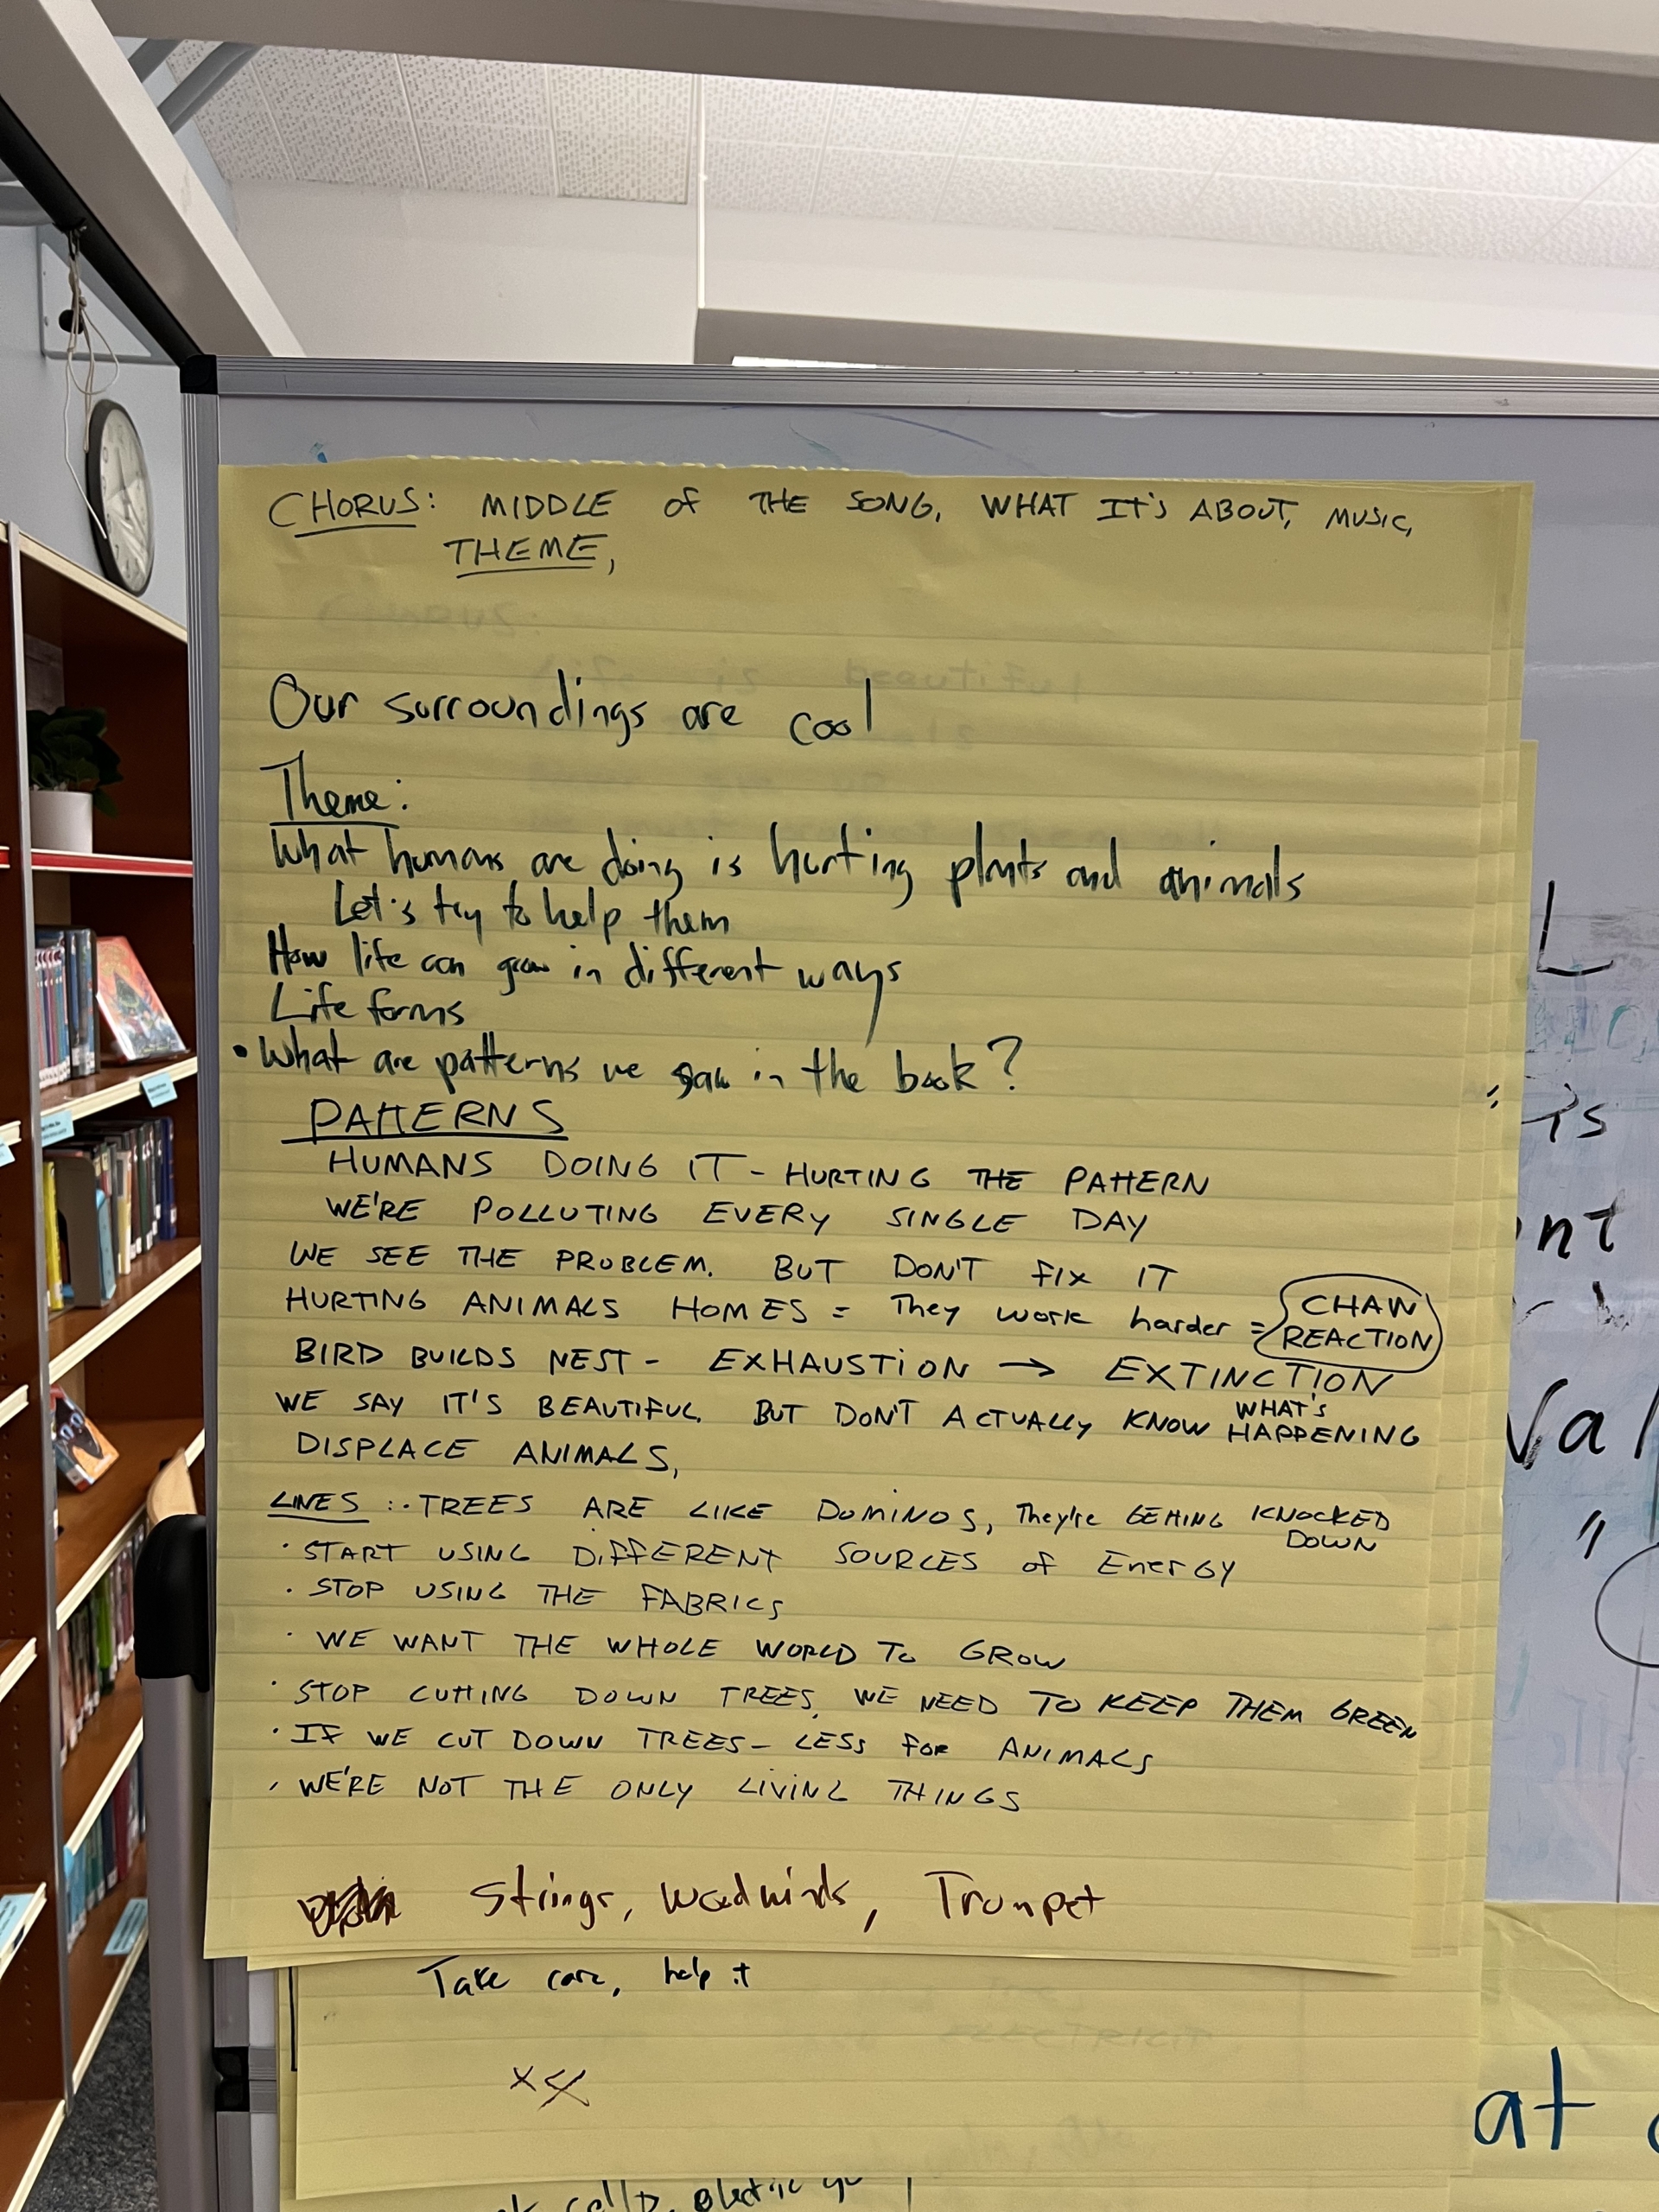 CHORUS: MIDDLE OF THE SONG, WHAT IT'S ABOUT, MUSIC,
THEME,
Our surroundings are cool
Theme:
What humans are doing is hurting plants and animals
Let's try to help them
How life can grow in different ways
Life forms
• What are patterns we saw in the book?
PATTERNS
HUMANS DOING IT - HURTING THE PATTERN
WE'RE POLLUTING EVERY SINGLE DAY
WE SEE THE PROBLEM. BUT DON'T FIX IT
HURTING ANIMALS HOMES = They work harder = CHAIN
REACTION
BIRD BUILDS NEST - EXHAUSTION → EXTINCTION
WE SAY IT'S BEAUTIFUL. BUT DON'T ACTUALLY KNOW WHAT'S
HAPPENING
DISPLACE ANIMALS,
LINES : · TREES ARE LIKE DOMINOS, They're GETTING KNOCKED
DOWN
· START USING DIFFERENT SOURCES OF ENERGY
· STOP USING THE FABRICS
· WE WANT THE WHOLE WORLD TO GROW
· STOP CUTTING DOWN TREES, WE NEED TO KEEP THEM GREEN
· IF WE CUT DOWN TREES - LESS FOR ANIMALS
· WE'RE NOT THE ONLY LIVING THINGS
Strings, Woodwinds, Trumpet
Take care, help it
L
is
nt
Val
"
at